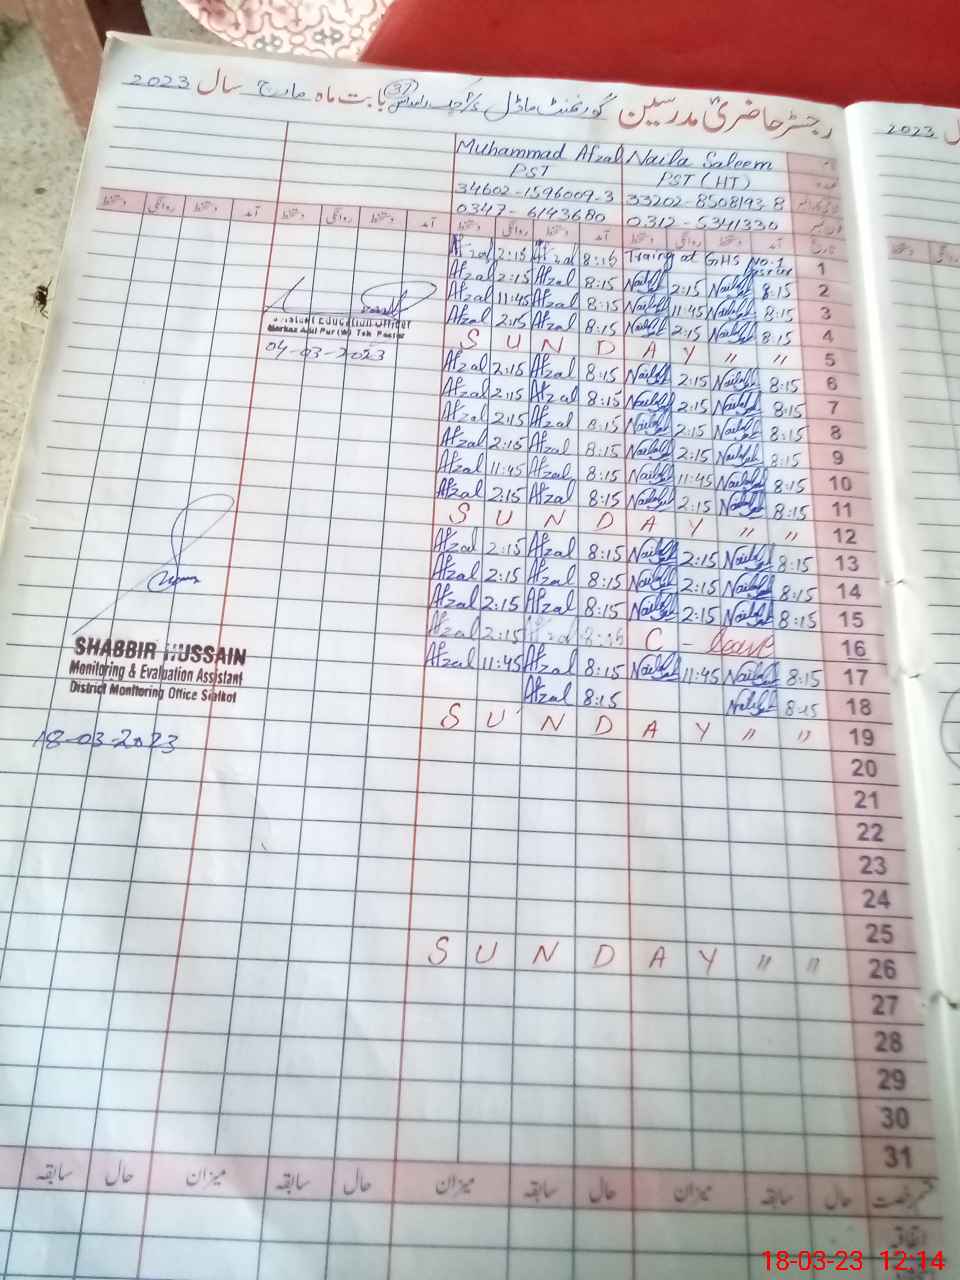 رجسٹر حاضری مدرسین گورنمنٹ ماڈل بابت ماہ مارچ سال 2023
2023
Muhammad Afzal Naila Saleem
PST PST (HT)
34602-1596009-3 33202-8508193-8
0347-6143680 0312-5341330
تاریخ آمد دستخط روانگی دستخط آمد دستخط روانگی دستخط آمد دستخط روانگی دستخط آمد دستخط روانگی دستخط
Afzal 2:15 Afzal 8:15 Traing at GHS No.1 1
Afzal 2:15 Afzal 8:15 Naila 2:15 Naila 8:15 2
Afzal 11:45 Afzal 8:15 Naila 11:45 Naila 8:15 3
Afzal 2:15 Afzal 8:15 Naila 2:15 Naila 8:15 4
Assistant Education Officer
04-03-2023
S U N D A Y " " 5
Afzal 2:15 Afzal 8:15 Naila 2:15 Naila 8:15 6
Afzal 2:15 Afzal 8:15 Naila 2:15 Naila 8:15 7
Afzal 2:15 Afzal 8:15 Naila 2:15 Naila 8:15 8
Afzal 2:15 Afzal 8:15 Naila 2:15 Naila 8:15 9
Afzal 11:45 Afzal 8:15 Naila 11:45 Naila 8:15 10
Afzal 2:15 Afzal 8:15 Naila 2:15 Naila 8:15 11
S U N D A Y " " 12
Afzal 2:15 Afzal 8:15 Naila 2:15 Naila 8:15 13
Afzal 2:15 Afzal 8:15 Naila 2:15 Naila 8:15 14
Afzal 2:15 Afzal 8:15 Naila 2:15 Naila 8:15 15
Afzal 2:15 Afzal 8:15 C - Leave 16
Afzal 11:45 Afzal 8:15 Naila 11:45 Naila 8:15 17
Afzal 8:15 Naila 8:15 18
SHABBIR HUSSAIN
Monitoring & Evaluation Assistant
District Monitoring Office Sialkot
18-03-2023
S U N D A Y " " 19
20
21
22
23
24
25
S U N D A Y " " 26
27
28
29
30
31
حال سابقہ میزان حال سابقہ میزان حال سابقہ میزان حال سابقہ
اتفاقیہ
18-03-23 12:14